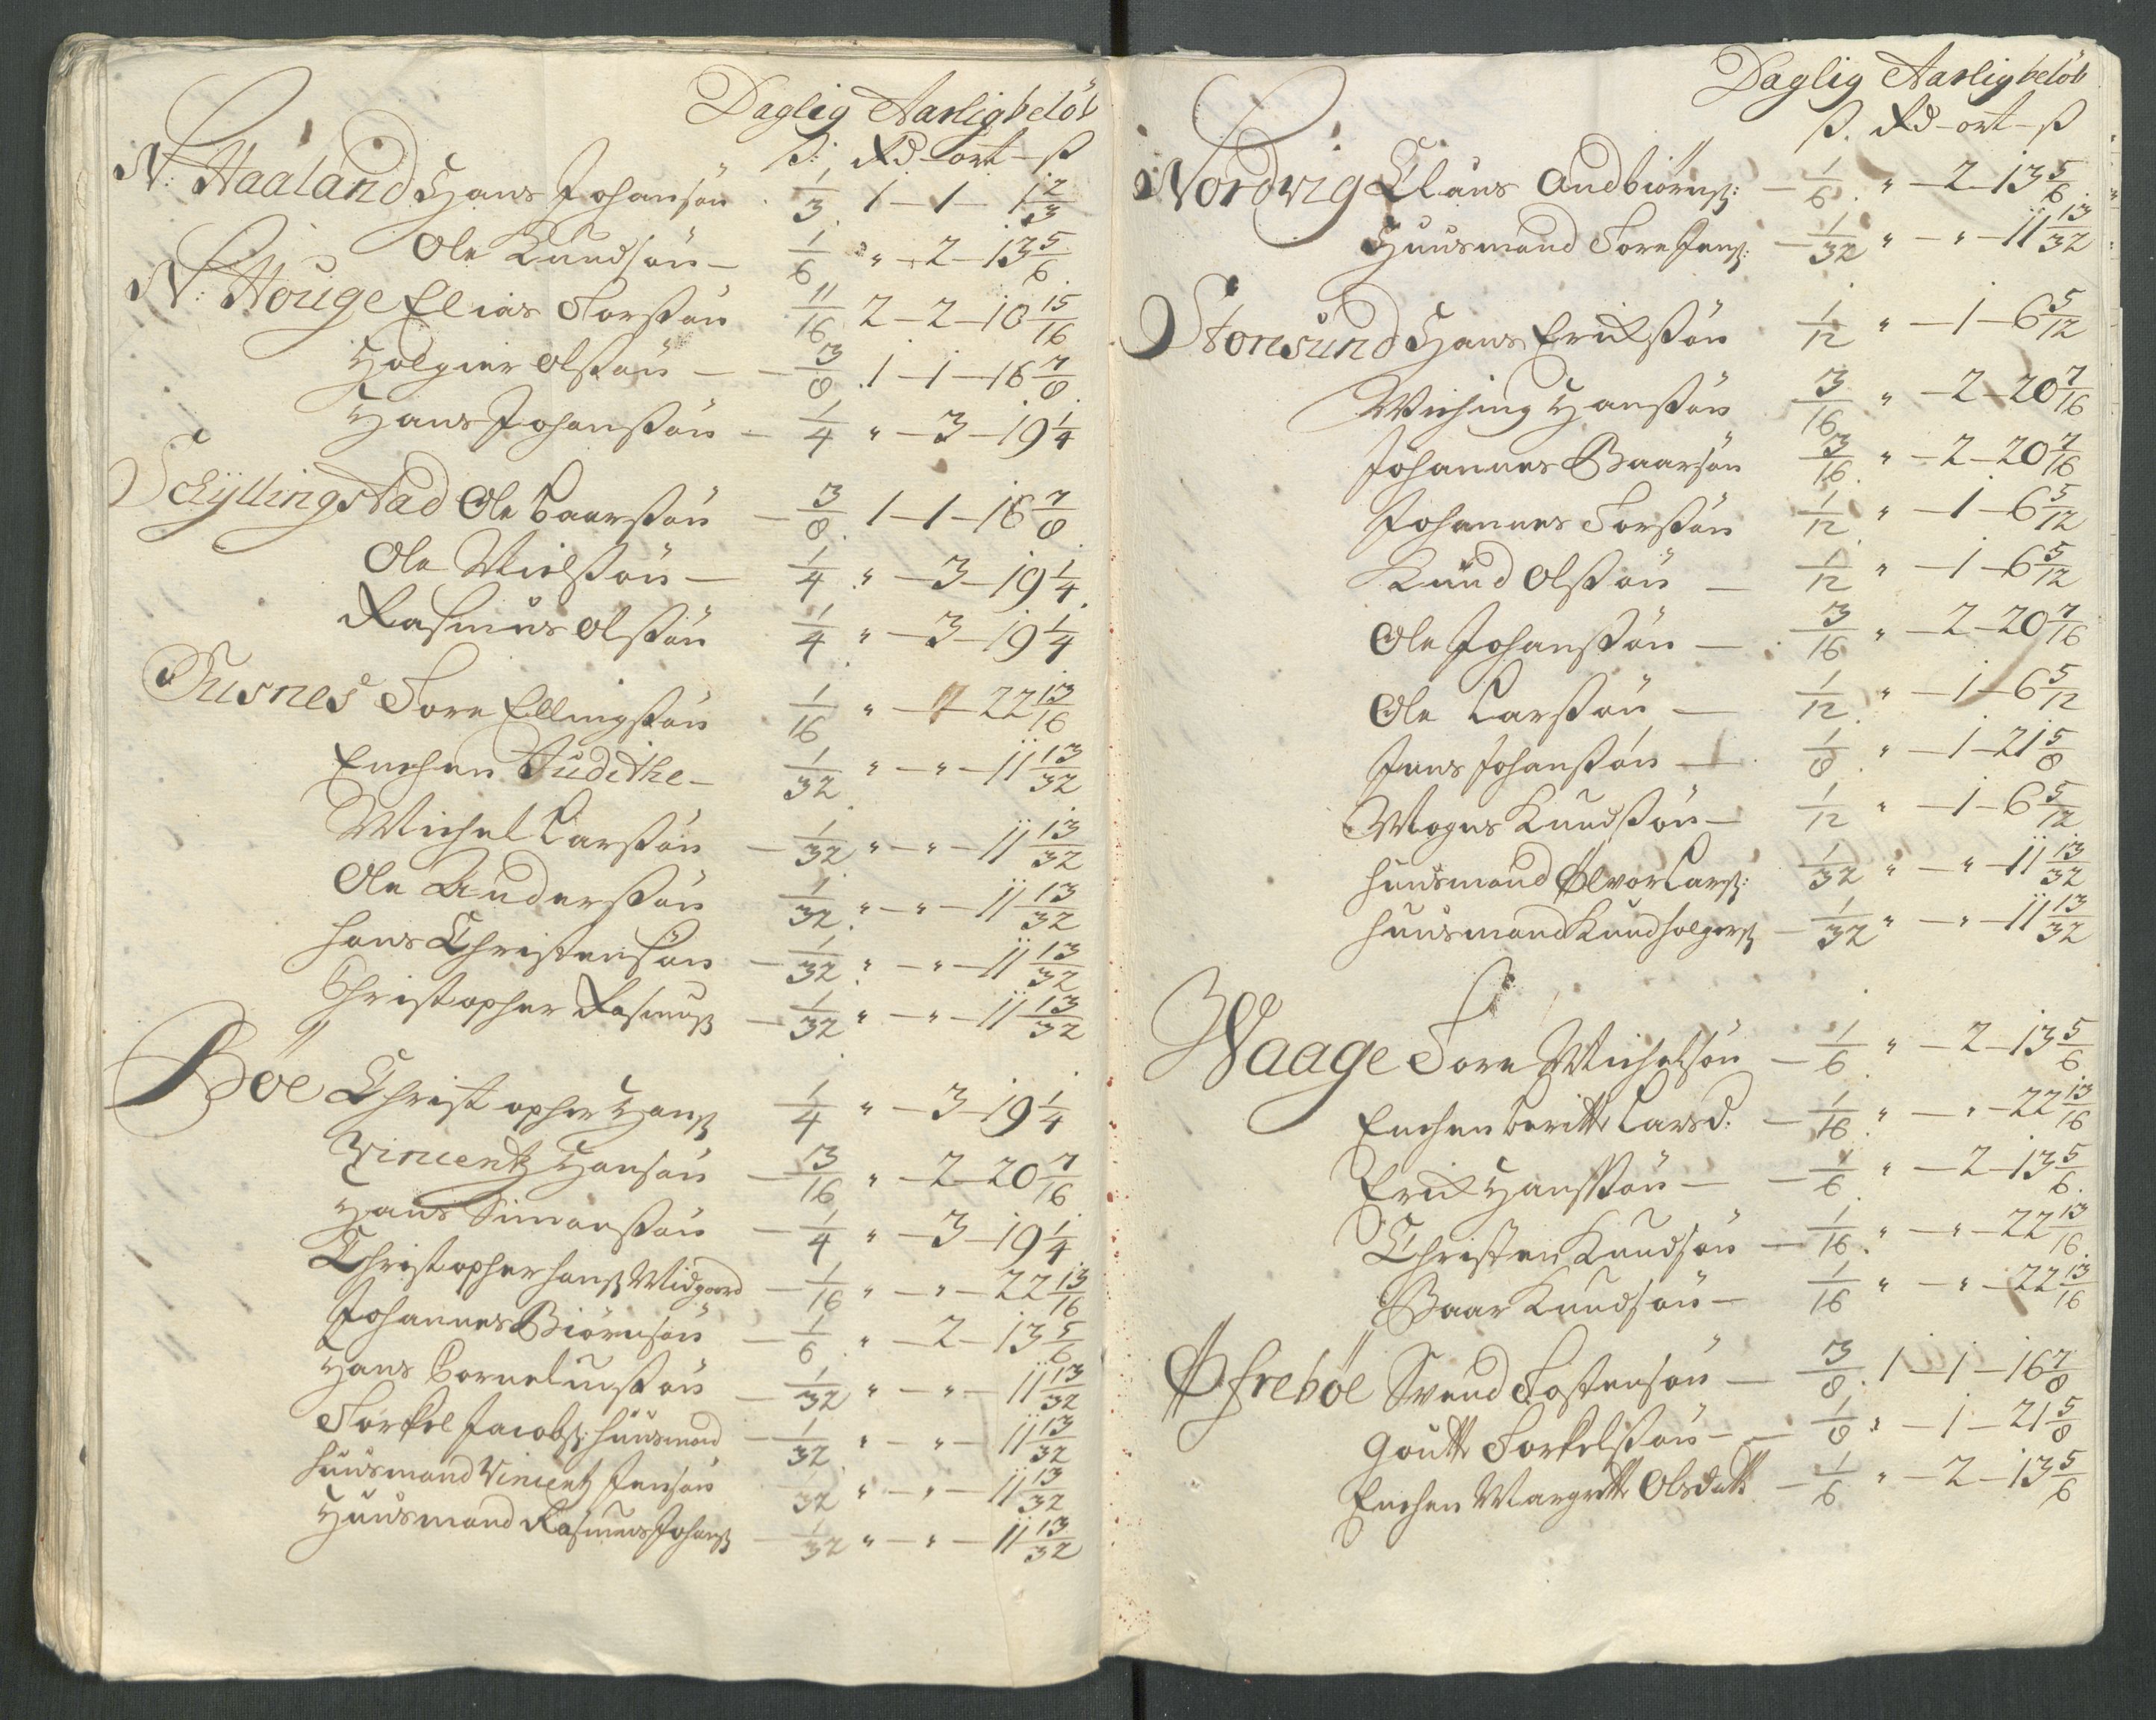 Daglig Aarligbelöb
ß: Rd - ort - ß
N: Haaland Hans Johansön 1/3 1 - 1 - 1 2/3
Ole Knudsön - 1/6 " - 2 - 13 5/6
N: Houge Elias Torßön 11/16 2 - 2 - 10 15/16
Holgier Olßön - 3/8 1 - 1 - 16 7/8
Hans Johanßön - 1/4 " - 3 - 19 1/4
Schyllingstad Ole Baarßön - 3/8 1 - 1 - 16 7/8
Ole Nielßön - 1/4 " - 3 - 19 1/4
Rasmus Olßön 1/4 " - 3 - 19 1/4
Tusnes Tore Ellingßön 1/16 " - " - 22 13/16
Enchen Judithe - 1/32 " - " - 11 13/32
Michel Larßön - 1/32 " - " - 11 13/32
Ole Anderßön 1/32 " - " - 11 13/32
Hans Christensön - 1/32 " - " - 11 13/32
Christopher Rasmuß - 1/32 " - " - 11 13/32
Böe Christopher Hanß 1/4 " - 3 - 19 1/4
Vincentz Hansön - 3/16 " - 2 - 20 7/16
Hans Simonßön - 1/4 " - 3 - 19 1/4
Christopher Hanß Midgaard - 1/16 " - " - 22 13/16
Johannes Biörnsön - 1/6 " - 2 - 13 5/6
Hans Corneliußön - 1/32 " - " - 11 13/32
Torkel Jacobß: Huusmand - 1/32 " - " - 11 13/32
Huusmand Vincentz Jensön 1/32 " - " - 11 13/32
Huusmand Rasmus Johanß - 1/32 " - " - 11 13/32
Daglig Aarligbelöb
ß. Rd - ort - ß
Nordvig Claus Andbiörnß: - 1/6 " - 2 - 13 5/6
Huusmand Tore Jenß: - 1/32 " - " - 11 13/32
Stonsund Hans Erickßön 1/12 " - 1 - 6 5/12
Hanßön 3/16 " - 2 - 20 7/16
Johannes Baarsön 3/16 " - 2 - 20 7/16
Johannes Torßön 1/12 " - 1 - 6 5/12
Knud Olßön - 1/12 " - 1 - 6 5/12
Ole Johanßön - 3/16 " - 2 - 20 7/16
Ole Larßön - 1/12 " - 1 - 6 5/12
Jens Johanßön - 1/8 " - 1 - 21 5/8
Mogns Knudßön - 1/12 " - 1 - 6 5/12
Huusmand Ølvor Larß: 1/32 " - " - 11 13/32
Huusmand Knud Holgerß - 1/32 " - " - 11 13/32
Waage Tore Michelsön - 1/6 " - 2 - 13 5/6
Enchen Beritte Larsd. - 1/16 " - " - 22 13/16
Erick Hanßön - 1/6 " - 2 - 13 5/6
Christen Knudsön - 1/16 " - " - 22 13/16
Baar Knudsön - 1/16 " - " - 22 13/16
Øfreböe Svend Tostensön - 3/8 1 - 1 - 16 7/8
Goutte Torkelßön - 1/8 " - 1 - 21 5/8
Enchen Margrette Olsdatt - 1/6 " - 2 - 13 5/6